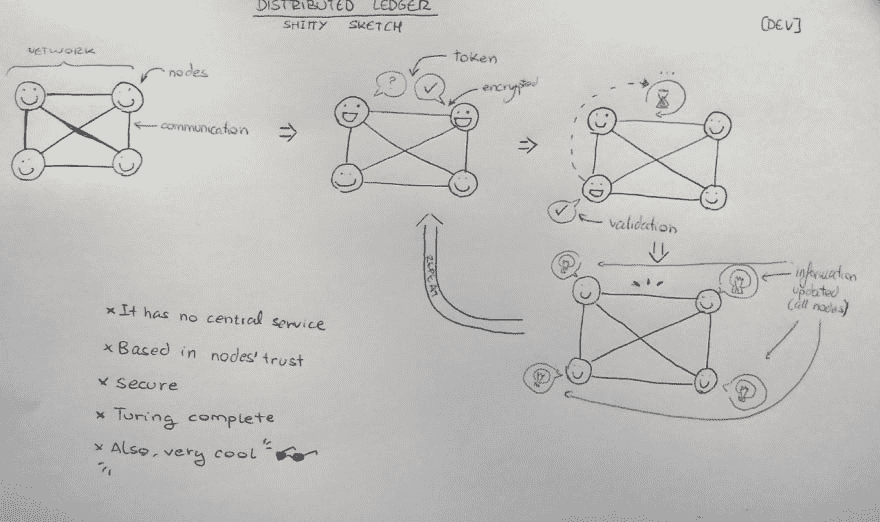 DISTRIBUTED LEDGER
SHITTY SKETCH
[DEV]
NETWORK
nodes
communication
token
?
encrypted
...
validation
information
updated
(all nodes)
REPEAT
* It has no central service
* Based in nodes' trust
* Secure
* Turing complete
* Also, very cool